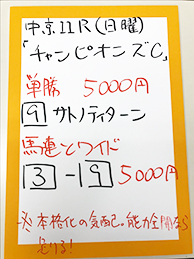 中京11R(日曜)
「チャンピオンズC」
単勝 5000円
9 サトノティターン
馬連とワイド
3-19 5000円
本格化の気配。能力全開なら